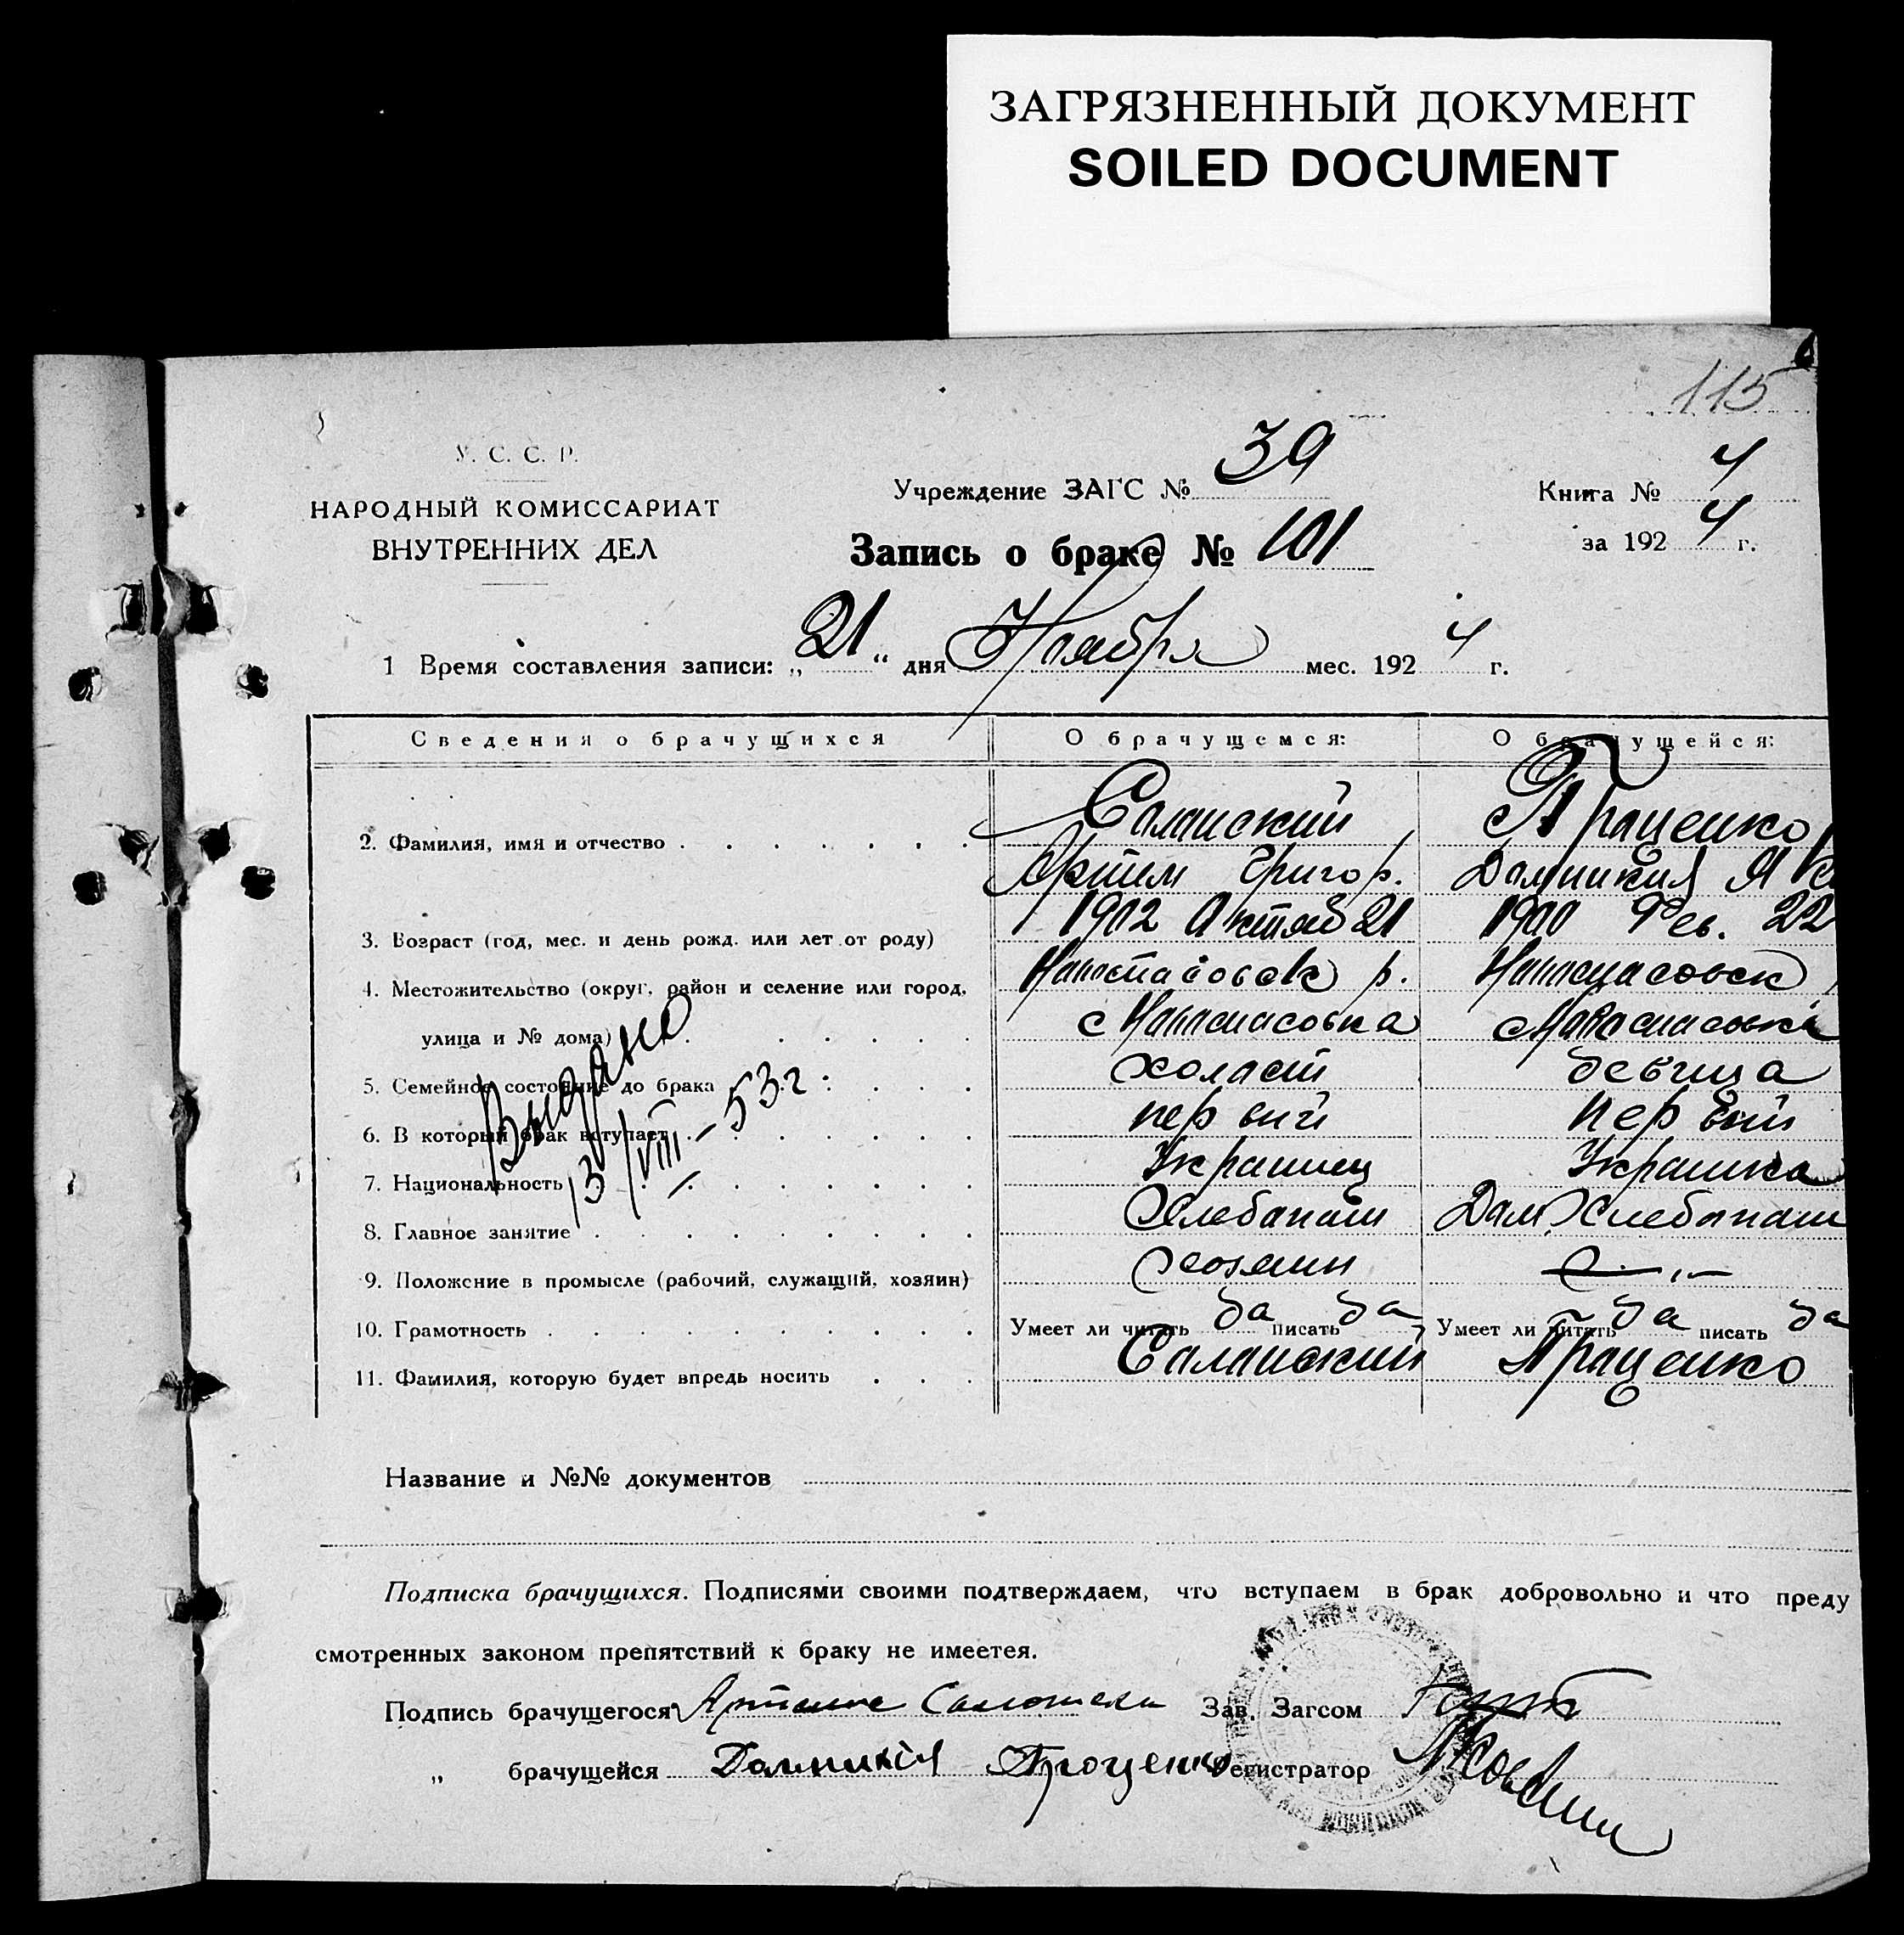 ЗАГРЯЗНЕННЫЙ ДОКУМЕНТ
SOILED DOCUMENT
115
У. С. С. Р.
НАРОДНЫЙ КОМИССАРИАТ
ВНУТРЕННИХ ДЕЛ
Учреждение ЗАГС № 39
Книга № 4
за 192 4 г.
Запись о браке № 101
1 Время составления записи: „ 21 “ дня Ноября мес. 192 4 г.
Сведения о брачущихся О брачущемся: О брачущейся:
2. Фамилия, имя и отчество Саланский Праценко
Артем Григор. Домникия Як
3. Возраст (год, мес. и день рожд. или лет от роду) 1902 Октяб 21 1900 Фев. 22
4. Местожительство (округ, район и селение или город, р.
улица и № дома) с
5. Семейное состояние до брака холаст девица
6. В который брак вступает первий первий
7. Национальность Украинец Украинка
8. Главное занятие Хлебапаш Дом. Хлебапаш
9. Положение в промысле (рабочий, служащий, хозяин) хозяин — „ —
10. Грамотность Умеет ли читать да писать да Умеет ли читать да писать да
11. Фамилия, которую будет впредь носить Саланский Праценко
Выдано
13/VIII – 53 г
Название и №№ документов
Подписка брачущихся. Подписями своими подтверждаем, что вступаем в брак добровольно и что преду
смотренных законом препятствий к браку не имеетея.
Подпись брачущегося Зав. Загсом
„ брачущейся Домникія Проценко Регистратор